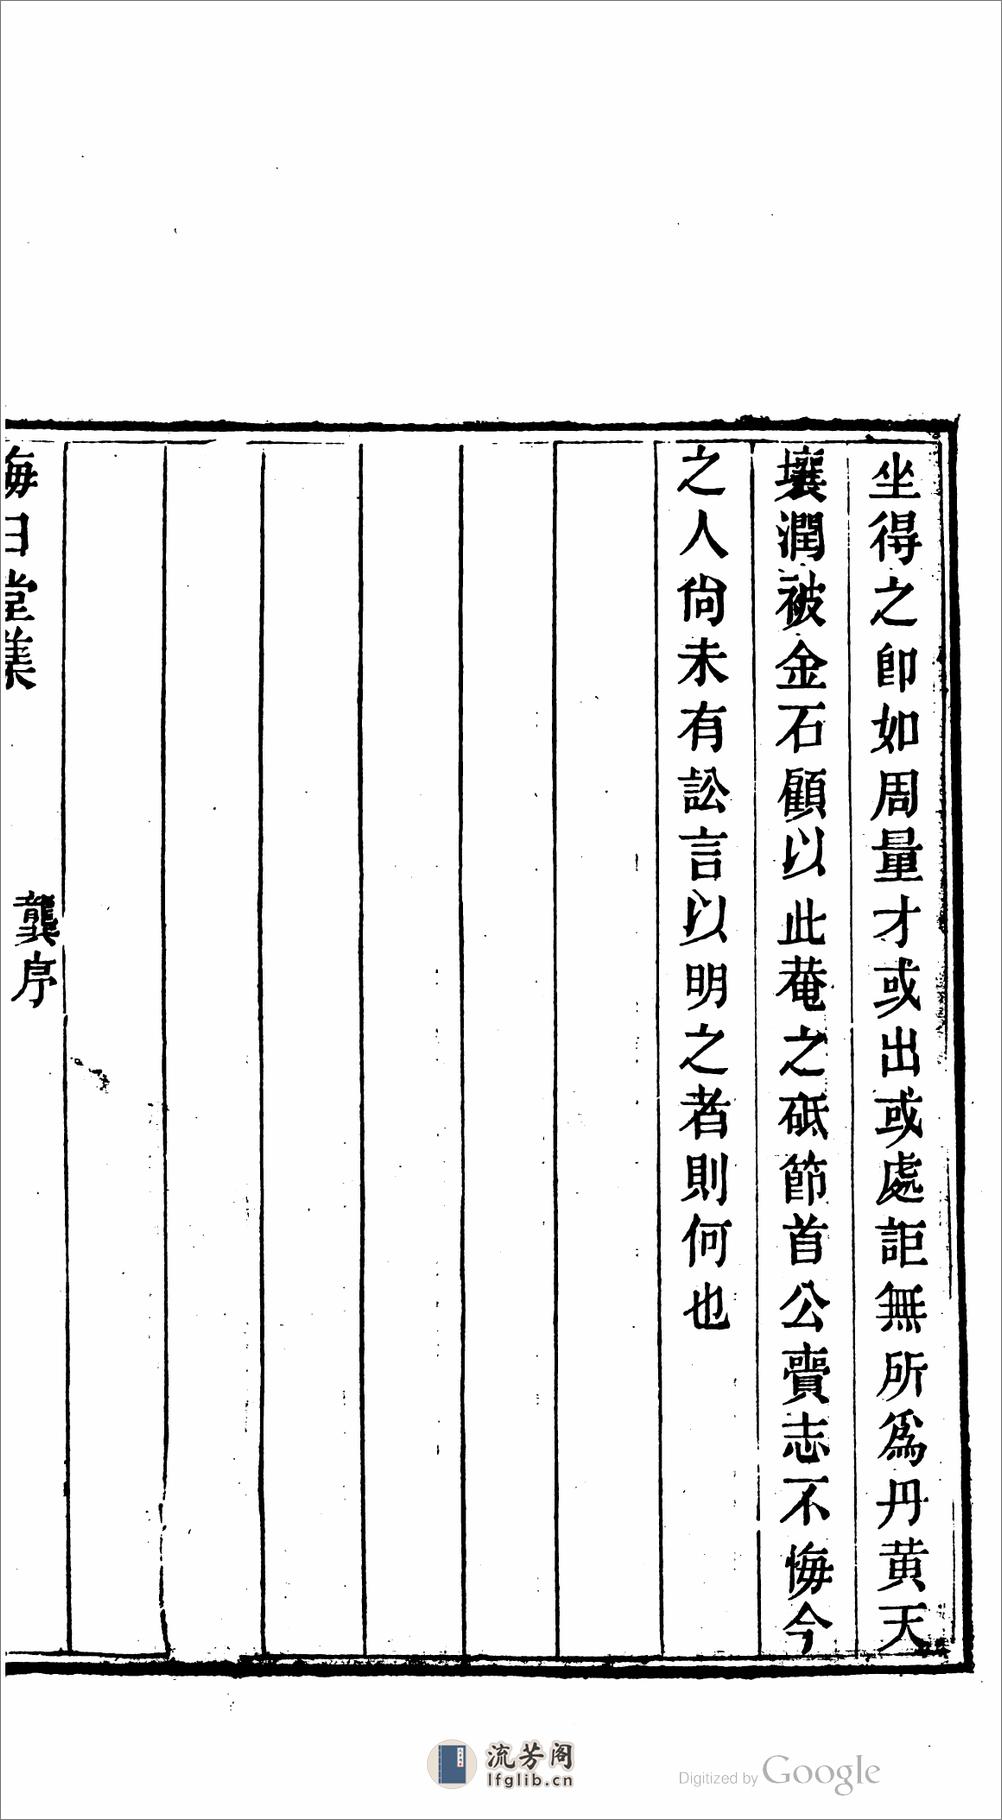 坐得之卽如周量才或出或處詎無所爲丹黄天
壤潤被金石顧以此菴之砥節首公賷志不悔今
之人尙未有訟言以明之者則何也
海日堂集
龔序
流芳阁
lfglib.cn
Digitized by Google